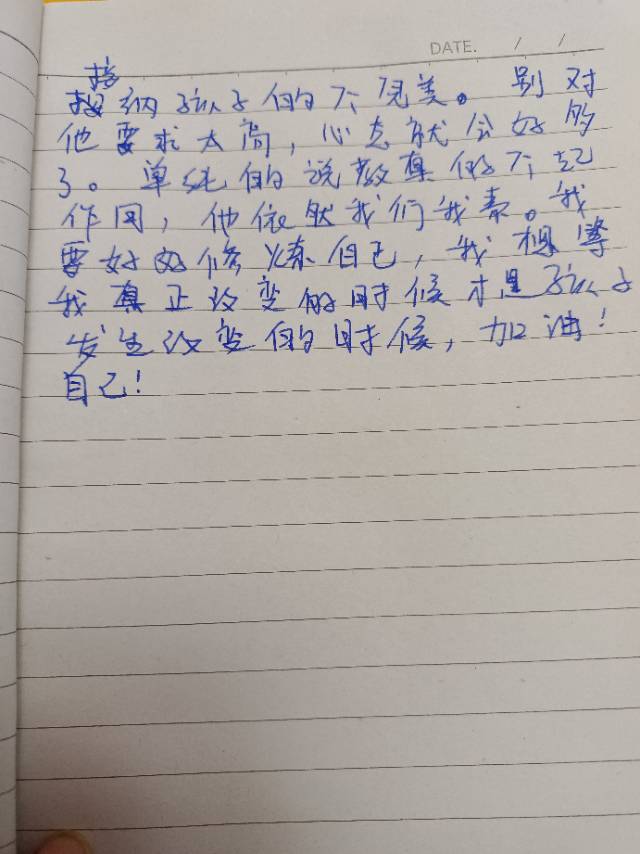 DATE. / /
接
接纳孩子的不完美。别对
他要求太高，心态就会好的多
了。单纯的说教真的不起
作用，他依然我们我素。我
要好好修炼自己，我想等
我真正改变的时候才是孩子
发生改变的时候，加油！
自己！